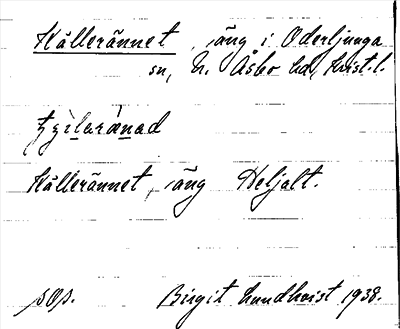 Källerännet, äng i Oderljunga
sn, N. Åsbo hd, Krist. l.
Källerännet, äng Heljalt.
Birgit Lundkvist 1938.